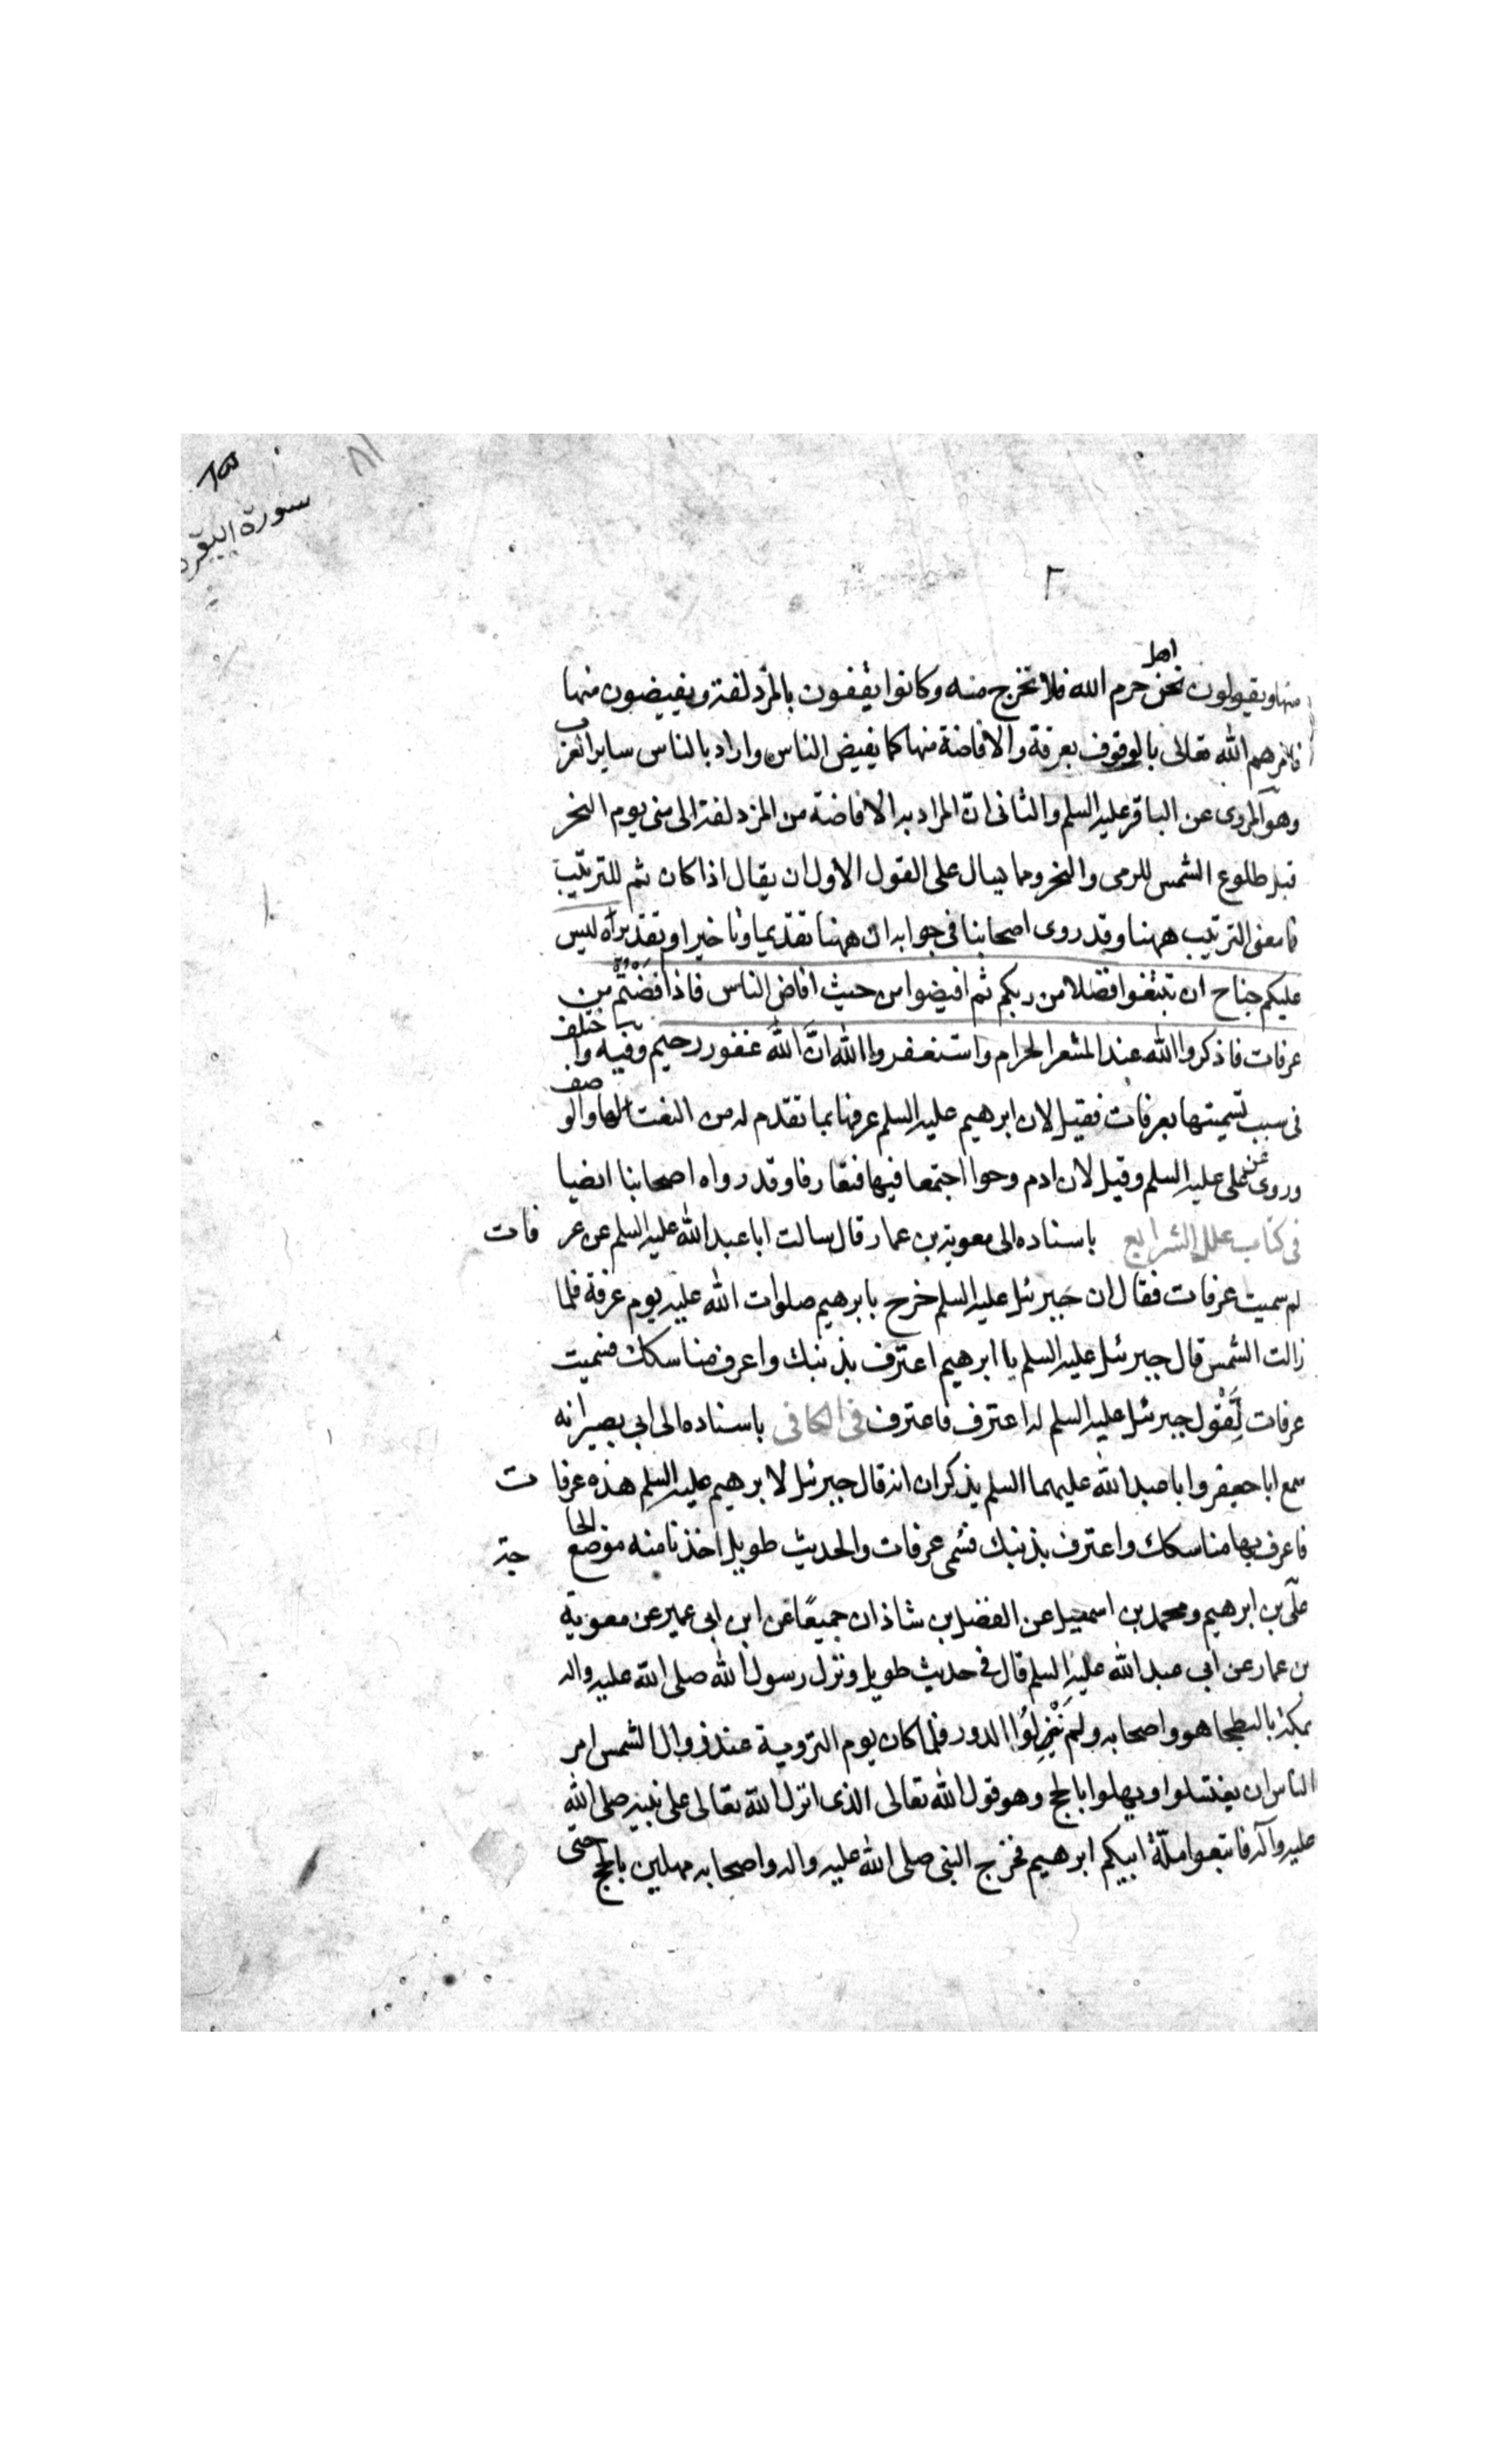 سورة البقره
٢
منها ويقولون نحن اهل حرم الله فلا نخرج منه وكانوا يقفون بالمزدلفة ويفيضون منها
فامرهم الله تعالى بالوقوف بعرفة والافاضة منها كما يفيض الناس واراد بالناس ساير العرب
وهو المروى عن الباقر عليه السلم والثانى ان المراد به الافاضة من المزدلفة الى منى يوم النحر
قبل طلوع الشمس للرمى والنحر ومما يسال على القول الاول ان يقال اذا كان ثم للترتيب
فا معنى الترتيب ههنا وقد روى اصحابنا فى جوابه ان ههنا تقديما وتاخيرا وتقديراه ليس
عليكم جناح ان تبتغوا فضلا من ربكم ثم افيضوا من حيث افاض الناس فاذا افضتم من
عرفات فاذكروا الله عند المشعر الحرام واستغفروا الله انّ الله غفور رحيم وفيه واختلف
فى سبب تسميتها بعرفات فقيل لان ابرهيم عليه السلم عرفها بما تقدم له من النعت لها والوصف
وروى عن على عليه السلم وقيل لان ادم وحوا اجتمعا فيها فتعارفا وقد رواه اصحابنا ايضا
فى كتاب علل الشرايع باسناده الى معوية بن عمار قال سالت ابا عبد الله عليه السلم عن عرفات
لم سميت عرفات فقال ان جبرئل عليه السلم خرج بابرهيم صلوات الله عليه يوم عرفة فلما
زالت الشمس قال جبرئل عليه السلم يا ابرهيم اعترف بذنبك واعرف مناسكك فسميت
عرفات لِقَوْل جبرئل عليه السلم له اعترف فاعترف فى الكافى باسناده الى ابى بصير انه
سمع ابا جعفر وابا عبد الله عليهما السلم يذكران انه قال جبرئل لابرهيم عليه السلم هذه عرفات
فاعرف بها مناسكك واعترف بذنبك فسمى عرفات والحديث طويل اخذنا منه موضع الحاجة
علىّ بن ابرهيم ومحمد بن اسمعيل عن الفضل بن شاذان جميعًا عن ابن ابى عمير عن معوية
بن عمار عن ابى عبد الله عليه السلم قال فى حديث طويل ونزل رسول الله صلى الله عليه واله
بمكة بالبطحا هو واصحابه ولم يَنْزِلُوا الدور فلما كان يوم التروية عند زوال الشمس امر
الناس ان يغتسلوا ويهلوا بالحج وهو قول الله تعالى الذى انزل الله تعالى على نبيه صلى الله
عليه وآله فاتبعوا ملّة ابيكم ابرهيم فخرج النبى صلى الله عليه واله واصحابه مهلين بالحج حتى